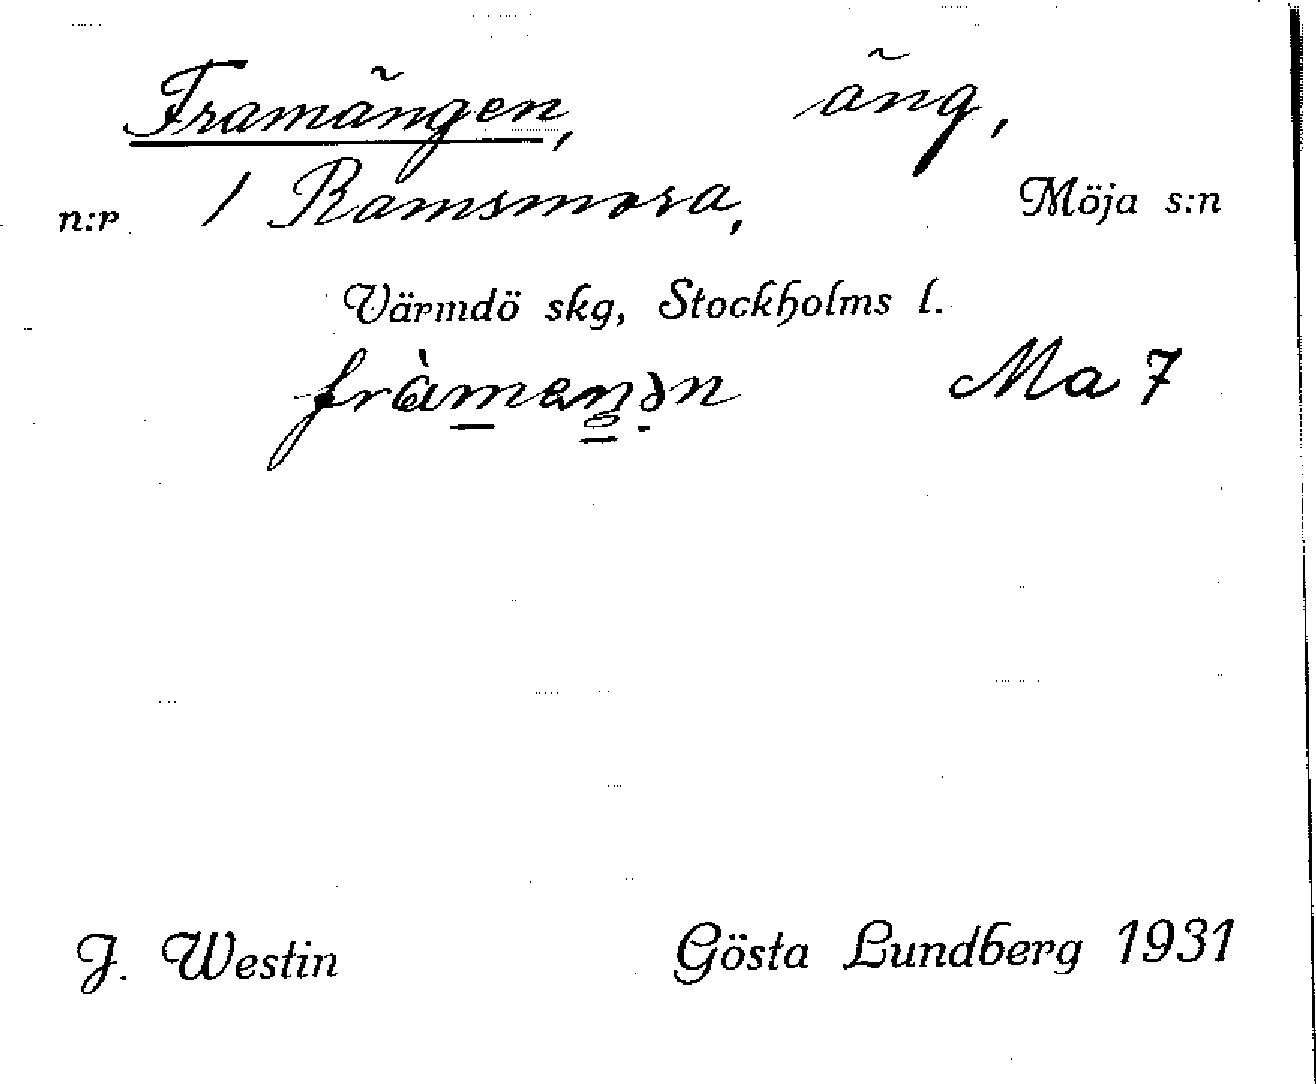 Framängen, äng,
n:r 1 Ramsmora, Möja s:n
Värmdö skg, Stockholms l.
Ma 7
J. Westin Gösta Lundberg 1931